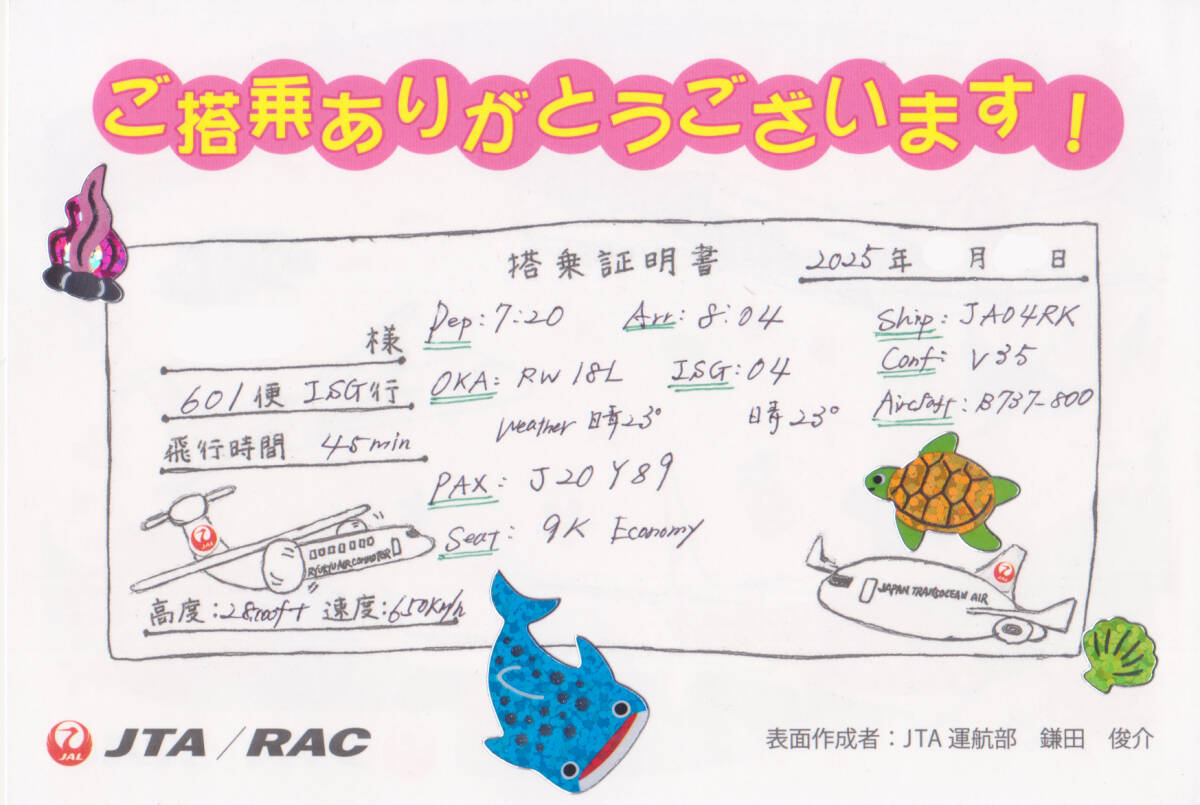 ご搭乗ありがとうございます!
搭乗証明書
2025年 月 日
様
601便 ISG行
飛行時間 45min
Dep: 7:20 Arr: 8:04
OKA: RW 18L ISG: 04
Weather 晴 23° 晴 23°
PAX: J20 Y89
Seat: 9K Economy
Ship: JA04RK
Conf: V35
Aircraft: B737-800
JAL
RYUKYU AIR COMMUTER
高度:28,000ft 速度:650km/h
JAPAN TRANSOCEAN AIR
JAL
JAL
JTA / RAC
表面作成者:JTA 運航部 鎌田 俊介